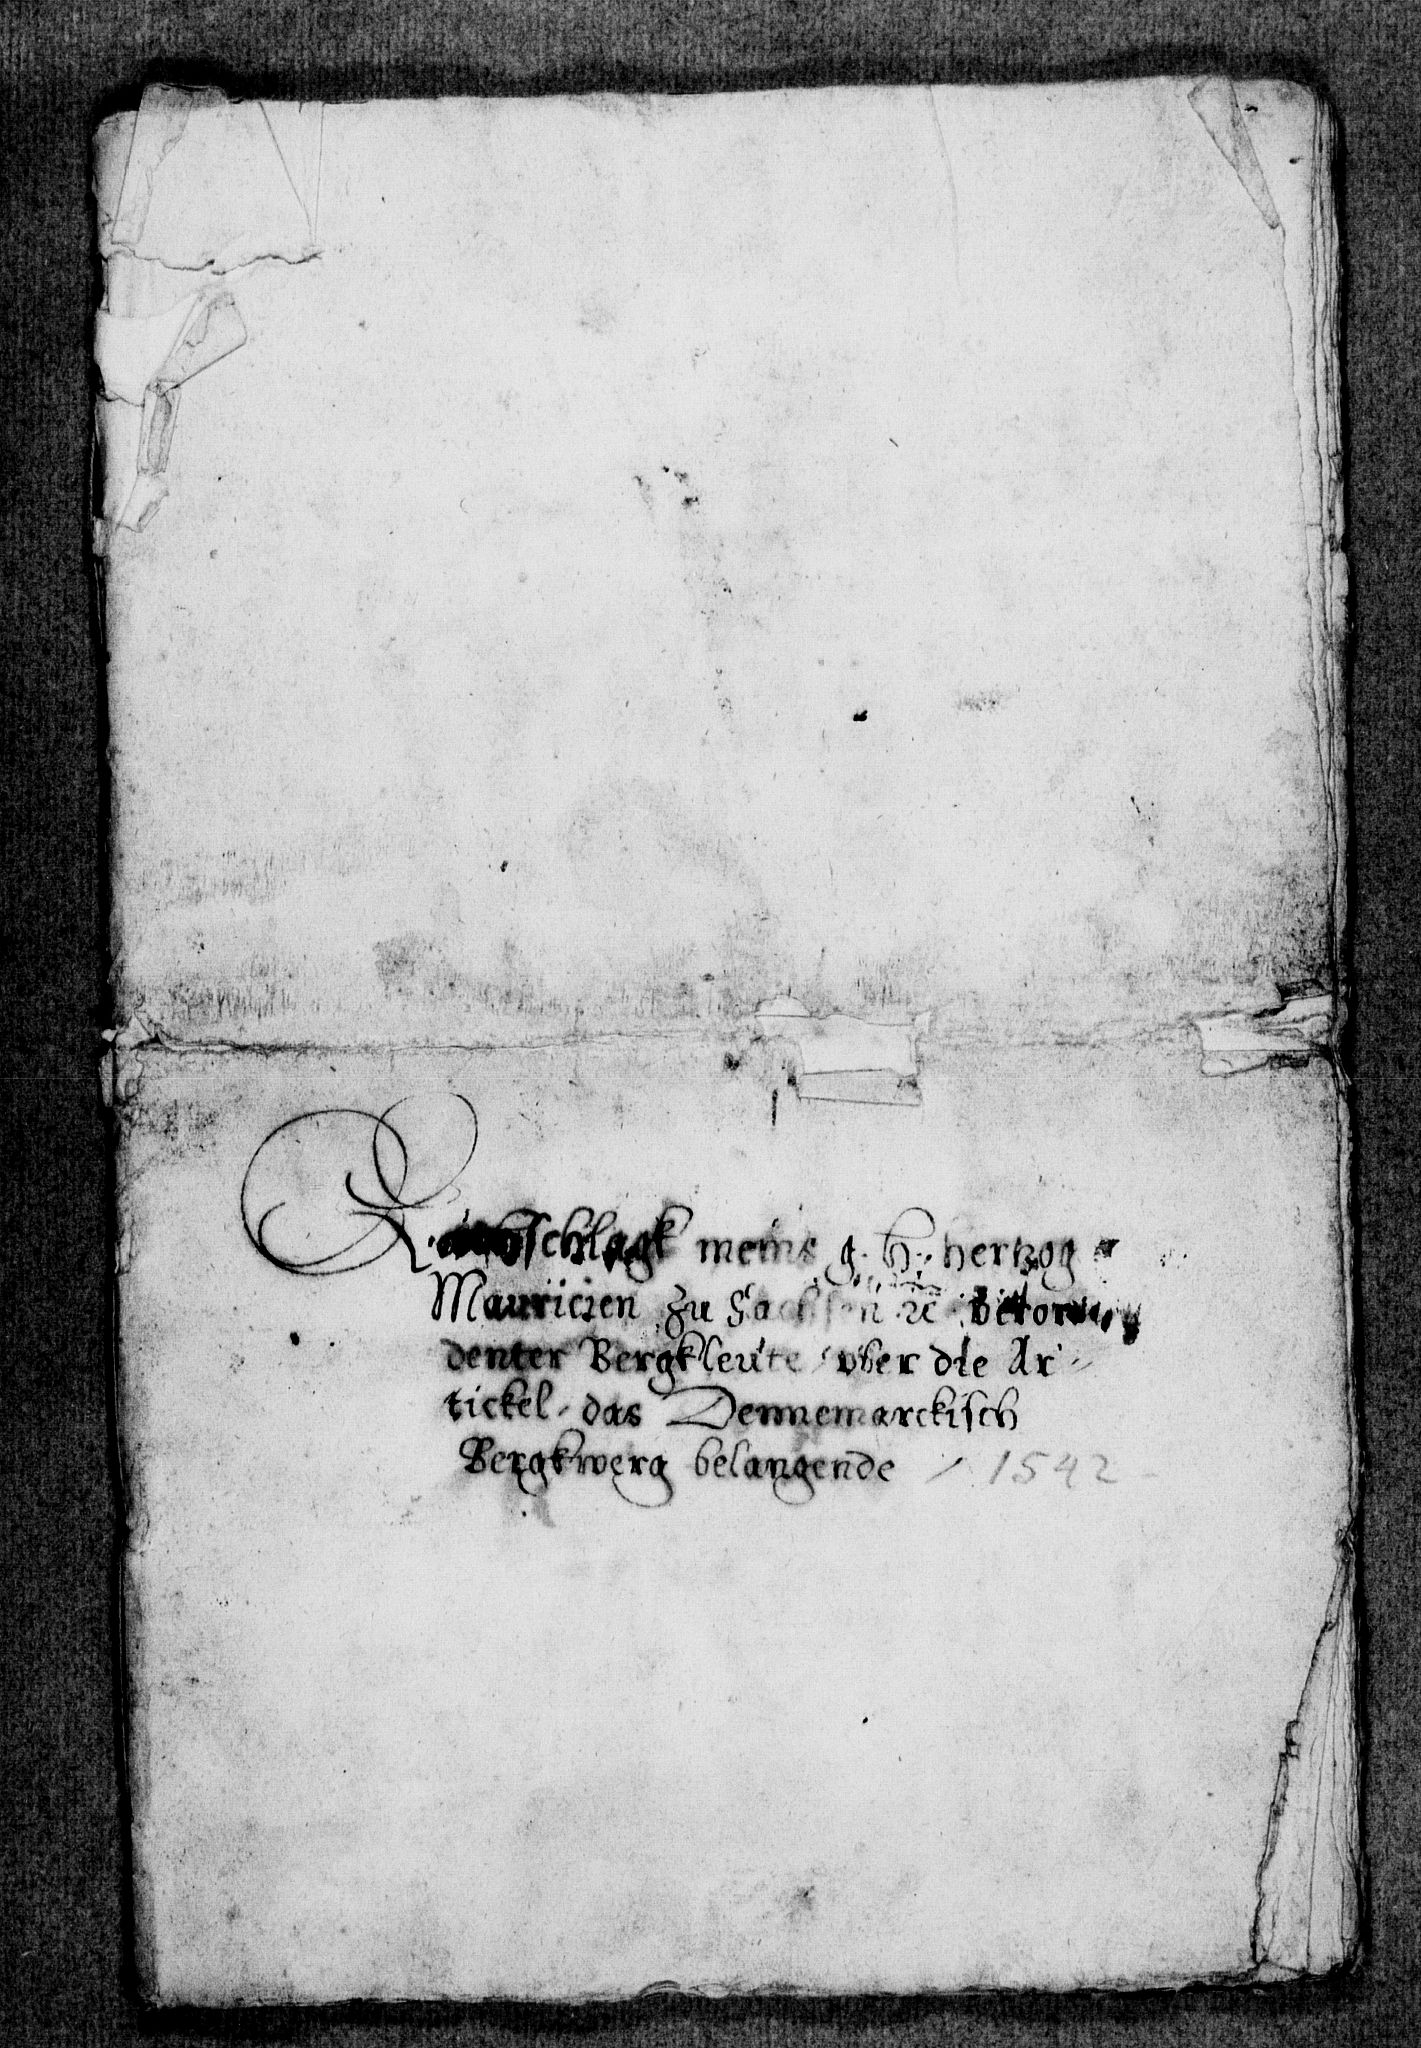 Rathschlagk meins g. H. hertzog
Mauricien zu Sachssen ꝛc
denter Bergkleute vber die Ar-
tickel das Dennemarckisch
Bergkwerg belangende / 1542